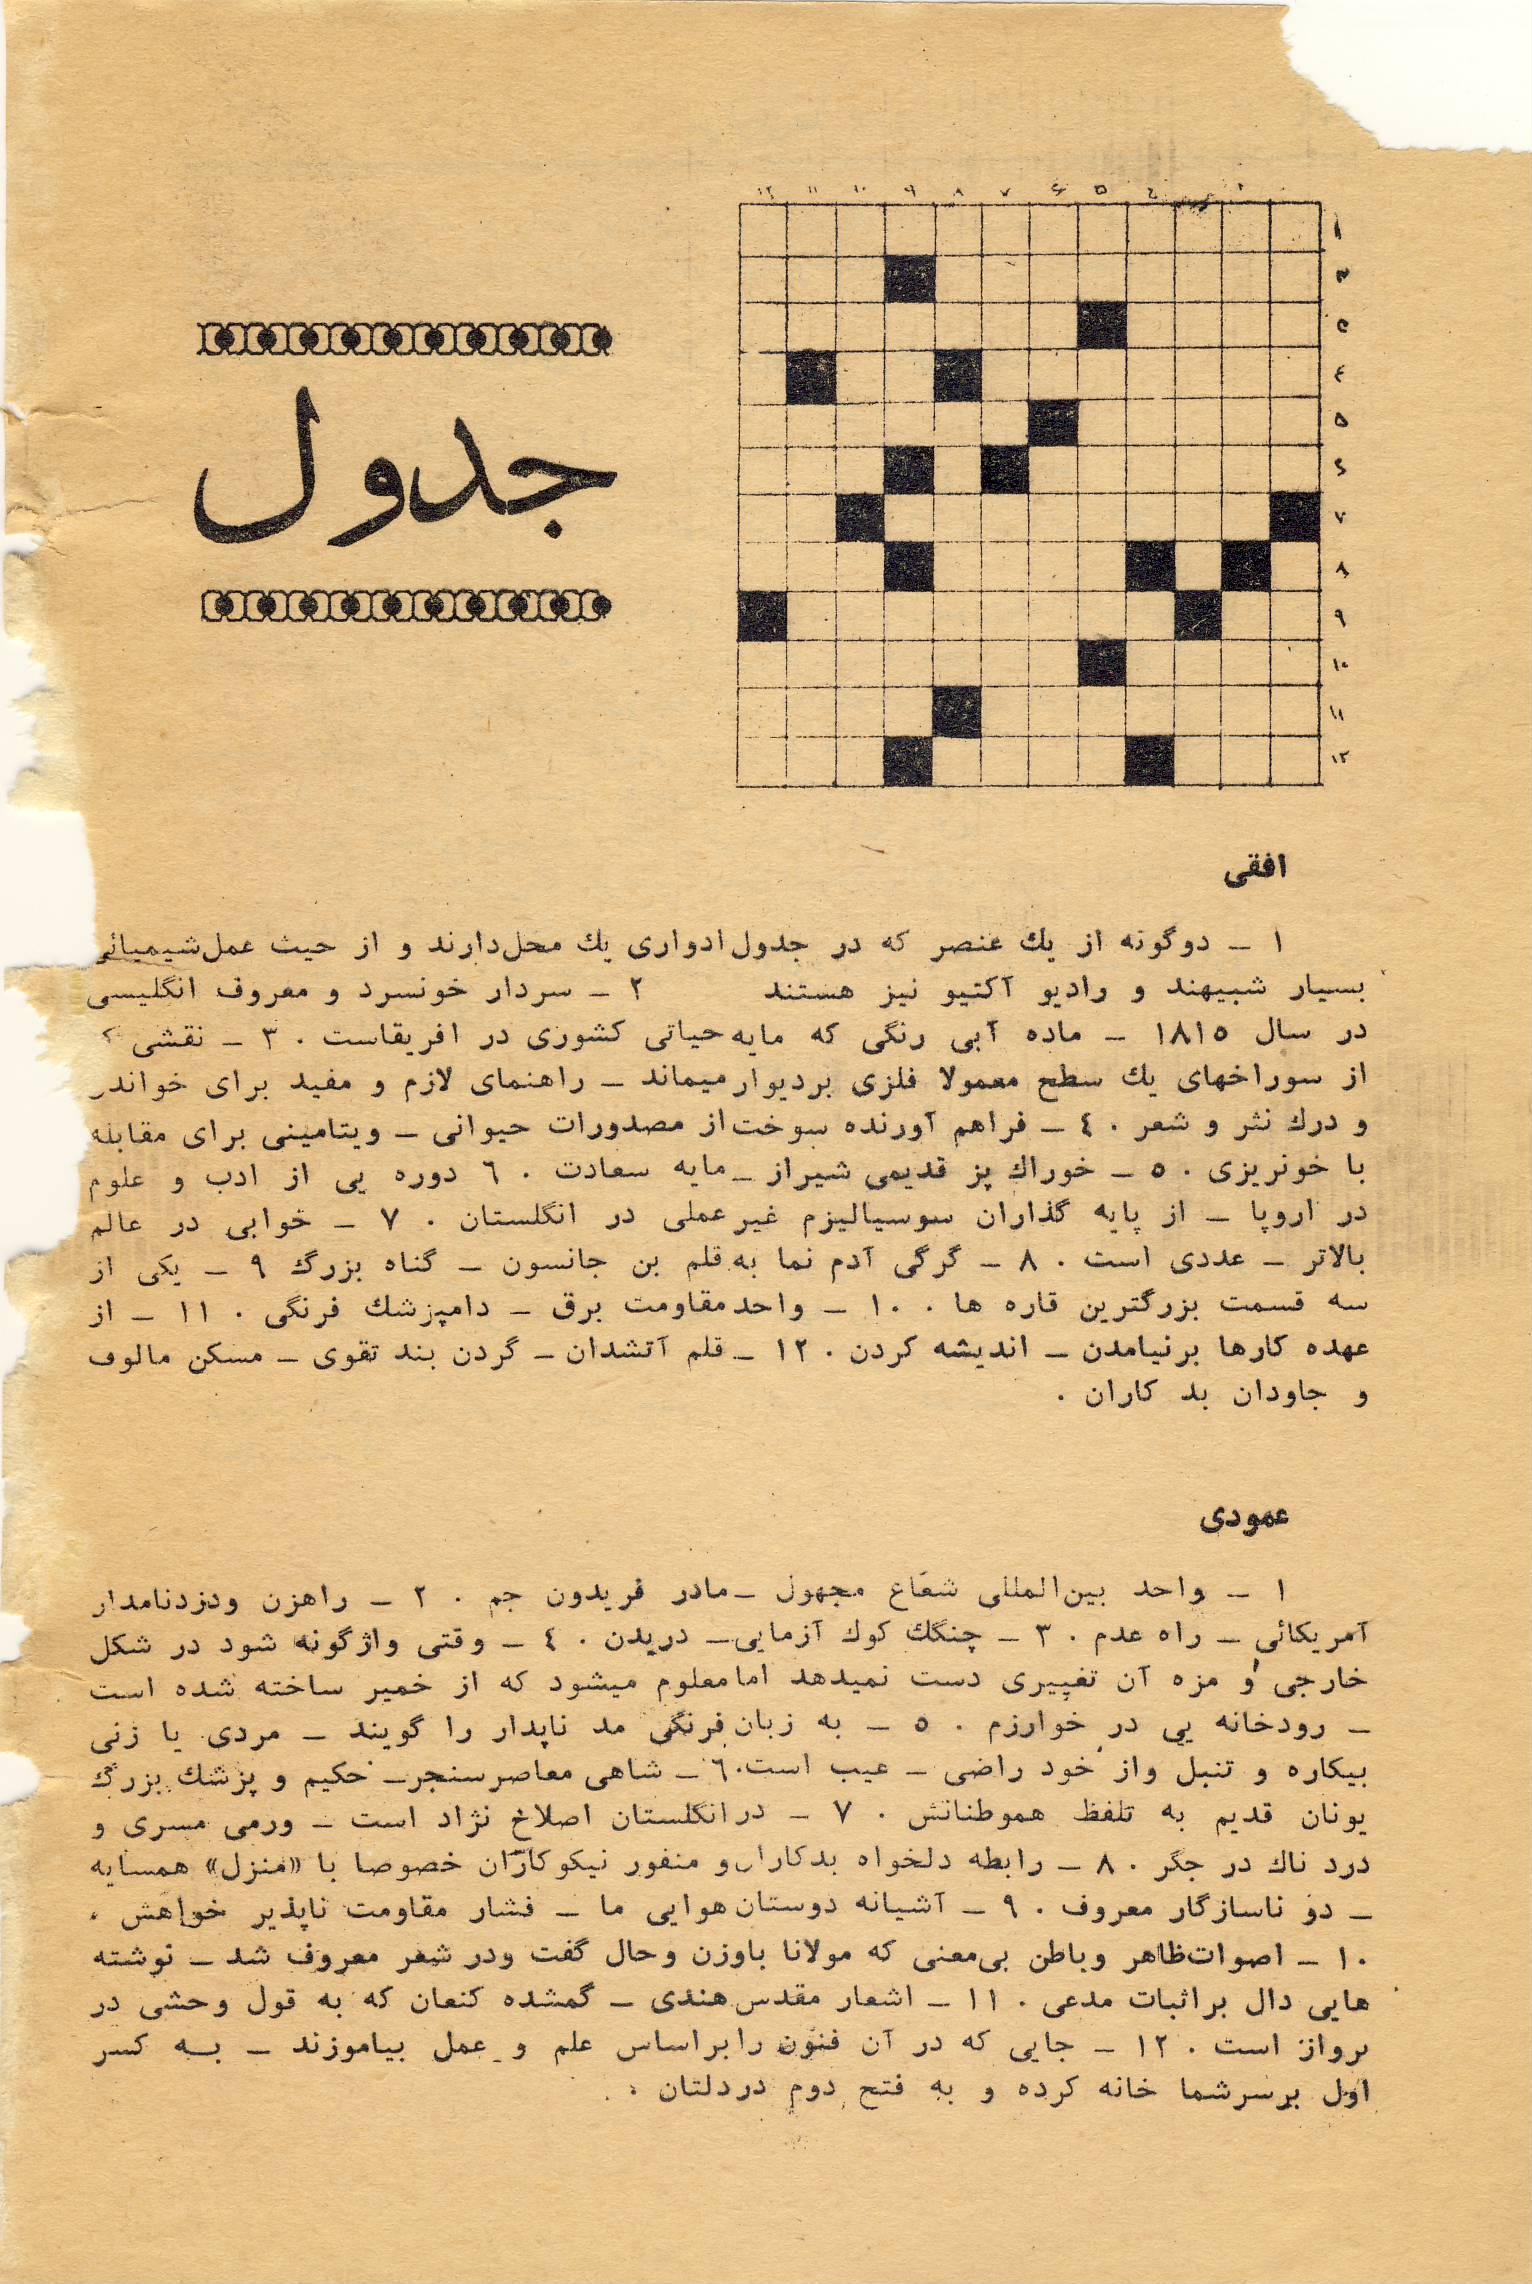 ۱۲ ۱۱ ۱۰ ۹ ۸ ۷ ۶ ۵ ٤
۱
۳
٤
۵
۶
۷
۸
۹
۱۰
۱۱
۱۲
جدول
افقی
۱ ـ دوگونه از یك عنصر که در جدول ادواری یك محل‌دارند و از حیث عمل‌شیمیائی
بسیار شبیهند و رادیو آکتیو نیز هستند ۲ ـ سردار خونسرد و معروف انگلیسی
در سال ۱۸۱۵ ـ ماده آبی رنگی که مایه حیاتی کشوری در افریقاست . ۳ ـ نقشی
از سوراخهای یك سطح معمولا فلزی بردیوار میماند ـ راهنمای لازم و مفید برای خواندن
و درك نثر و شعر . ٤ ـ فراهم آورنده سوخت از مصدورات حیوانی ـ ویتامینی برای مقابله
با خونریزی . ۵ ـ خوراك پز قدیمی شیراز ـ مایه سعادت . ٦ دوره یی از ادب و علوم
در اروپا ـ از پایه گذاران سوسیالیزم غیر عملی در انگلستان . ۷ ـ خوابی در عالم
بالاتر ـ عددی است . ۸ ـ گرگی آدم نما به قلم بن جانسون ـ گناه بزرگ ۹ ـ یکی از
سه قسمت بزرگترین قاره ها . ۱۰ ـ واحد مقاومت برق ـ دامپزشك فرنگی . ۱۱ ـ از
عهده کارها برنیامدن ـ اندیشه کردن . ۱۲ ـ قلم آتشدان ـ گردن بند تقوی ـ مسکن مالوف
و جاودان بد کاران .
عمودی
۱ ـ واحد بین‌المللی شعاع مجهول ـ مادر فریدون جم . ۲ ـ راهزن ودزدنامدار
آمریکائی ـ راه عدم . ۳ ـ چنگك كوك آزمایی ـ دریدن . ٤ ـ وقتی واژگونه شود در شکل
خارجی و مزه آن تغییری دست نمیدهد اما معلوم میشود که از خمیر ساخته شده است
ـ رودخانه یی در خوارزم . ۵ ـ به زبان فرنگی مد ناپدار را گویند ـ مردی یا زنی
بیکاره و تنبل واز خود راضی ـ عیب است . ٦ ـ شاهی معاصر سنجر ـ حکیم و پزشك بزرگ
یونان قدیم به تلفظ هموطنانش . ۷ ـ در انگلستان اصلاح نژاد است ـ ورمی مسری و
درد ناك در جگر . ۸ ـ رابطه دلخواه بدکاران و منفور نیکوکاران خصوصا با «منزل» همسایه
ـ دو ناسازگار معروف . ۹ ـ آشیانه دوستان هوایی ما ـ فشار مقاومت ناپذیر خواهش .
۱۰ ـ اصوات‌ظاهر وباطن بی‌معنی که مولانا باوزن وحال گفت ودر شعر معروف شد ـ نوشته
هایی دال براثبات مدعی . ۱۱ ـ اشعار مقدس هندی ـ گمشده کنعان که به قول وحشی در
پرواز است . ۱۲ ـ جایی که در آن فنون را براساس علم و عمل بیاموزند ـ بـه کسر
اول برسرشما خانه کرده و به فتح دوم دردلتان .